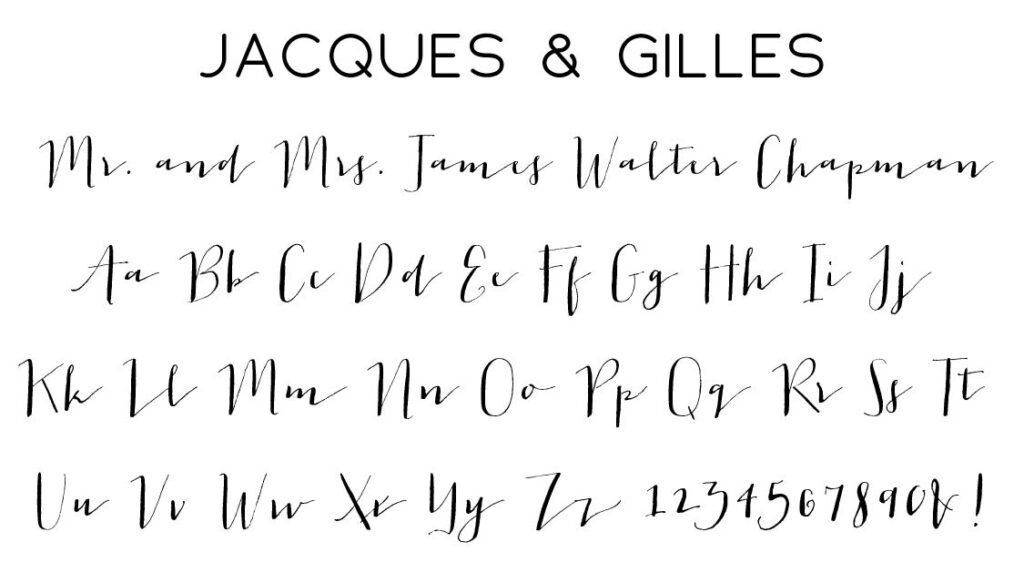 JACQUES & GILLES
Mr. and Mrs. James Walter Chapman
Aa Bb Cc Dd Ee Ff Gg Hh Ii Jj
Kk Ll Mm Nn Oo Pp Qq Rr Ss Tt
Uu Vv Ww Xx Yy Zz 1234567890&!